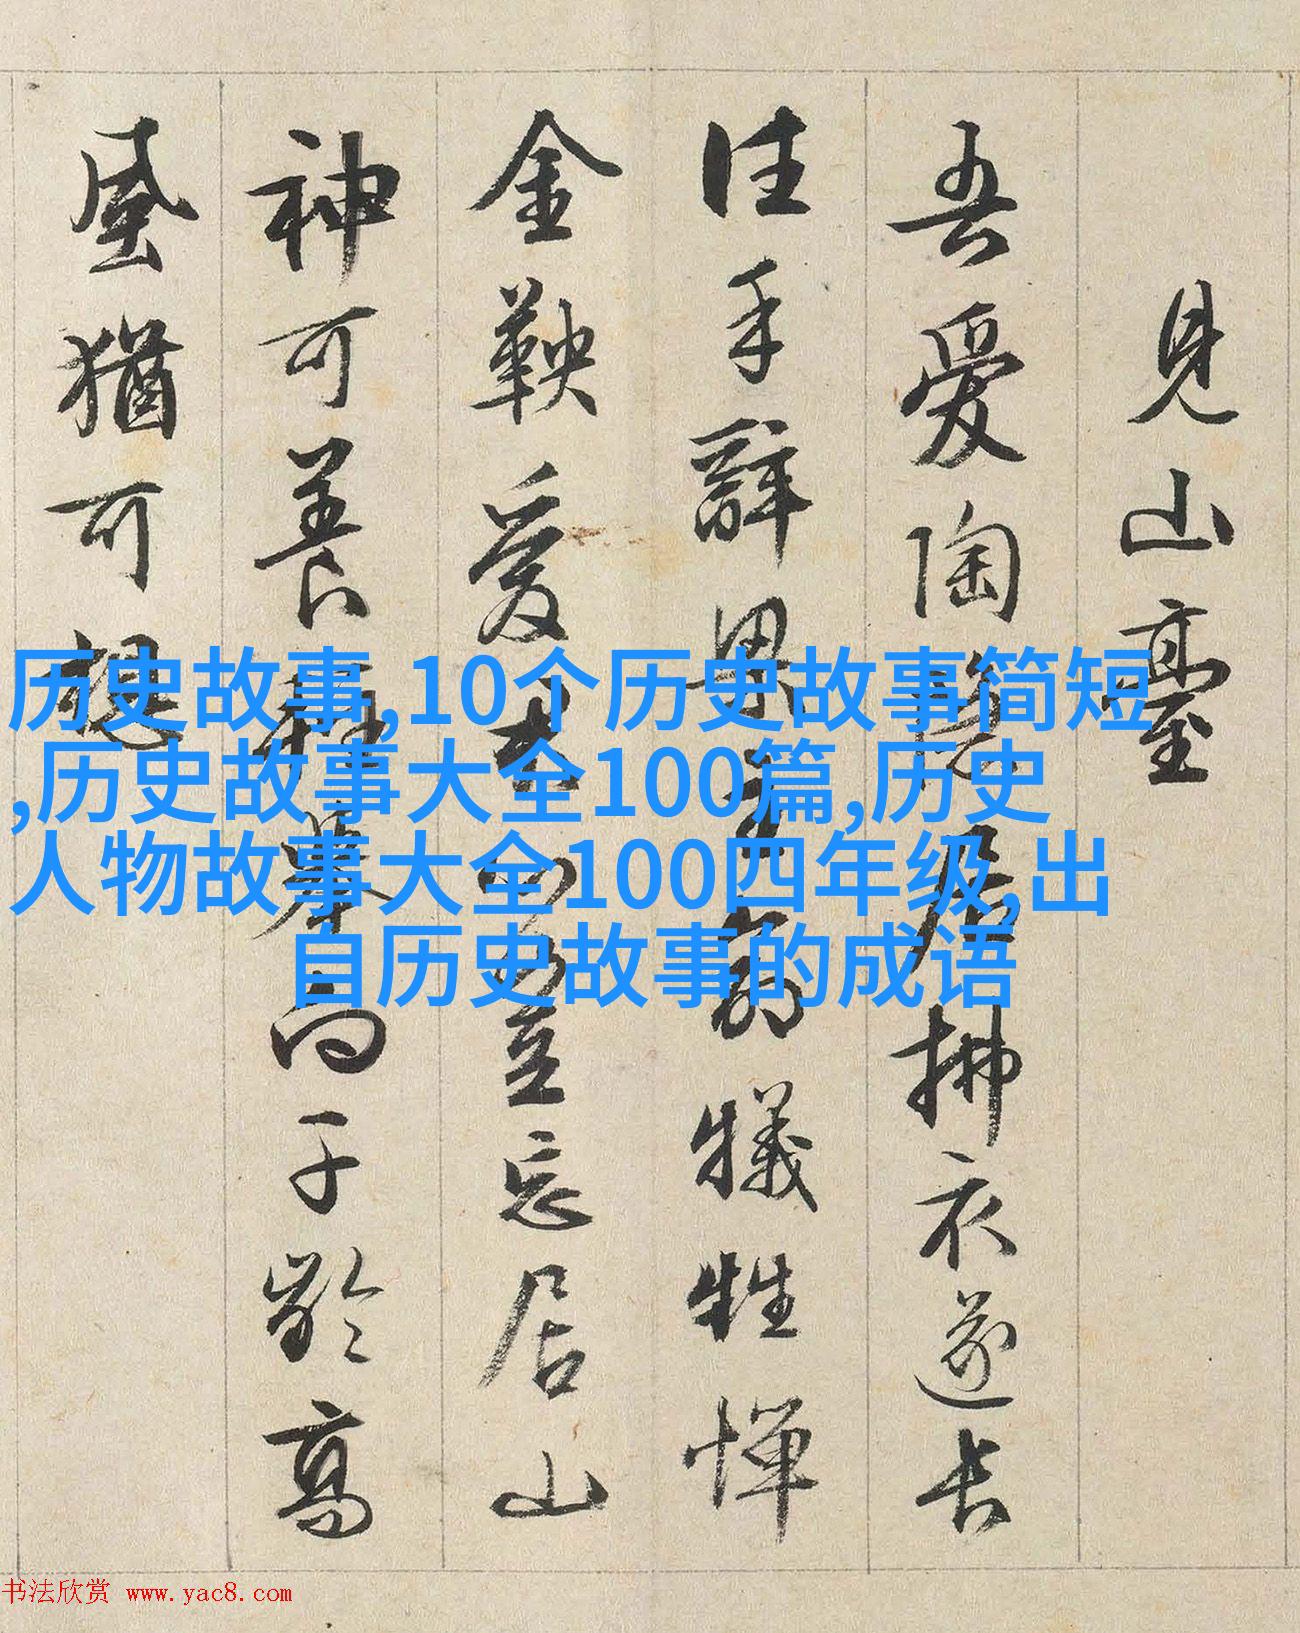 見山臺
吾愛陶隱居拂衣遂長
往手辭梁主命犧牲憚
金鞅愛君心豈忘居山
神可養輕舉向千齡高
風猶可想
历史故事,10个历史故事简短
,历史故事大全100篇,历史
人物故事大全100四年级,出
自历史故事的成语
书法欣赏 www.yac8.com